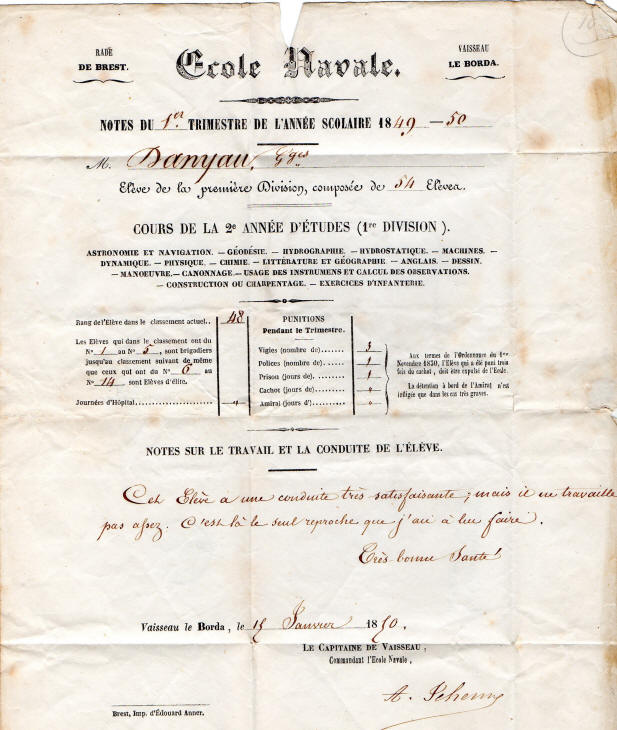 16
RADE
DE BREST.
Ecole Navale.
VAISSEAU
LE BORDA.
NOTES DU 1er TRIMESTRE DE L'ANNÉE SCOLAIRE 1849—50
M. Danyau, Gges
Elève de la première Division, composée de 54 Elèves.
COURS DE LA 2e ANNÉE D'ÉTUDES (1re DIVISION).
ASTRONOMIE ET NAVIGATION. — GÉODÉSIE. — HYDROGRAPHIE. — HYDROSTATIQUE. — MACHINES. —
DYNAMIQUE. — PHYSIQUE. — CHIMIE. — LITTÉRATURE ET GÉOGRAPHIE. — ANGLAIS. — DESSIN.
— MANOEUVRE. — CANONNAGE. — USAGE DES INSTRUMENS ET CALCUL DES OBSERVATIONS.
— CONSTRUCTION OU CHARPENTAGE. — EXERCICES D'INFANTERIE.
Rang de l'Elève dans le classement actuel.. 48
Les Elèves qui dans le classement ont du
No 1 au No 5, sont brigadiers
jusqu'au classement suivant de même
que ceux qui ont du No 6 au
No 14 sont Elèves d'élite.
Journées d'Hôpital.................... "
PUNITIONS
Pendant le Trimestre.
Vigies (nombre de)....... 3
Polices (nombre de)...... 1
Prison (jours de)........ 1
Cachot (jours de)........ "
Amiral (jours d')........ "
Aux termes de l'Ordonnance du 1er
Novembre 1830, l'Elève qui a été puni trois
fois du cachot, doit être expulsé de l'Ecole.
La détention à bord de l'Amiral n'est
infligée que dans les cas très graves.
NOTES SUR LE TRAVAIL ET LA CONDUITE DE L'ÉLÈVE.
Cet Elève a une conduite très satisfaisante; mais il ne travaille
pas assez. C'est là le seul reproche que j'aie à lui faire.
Très bonne Santé
Vaisseau le Borda, le 15 Janvier 1850.
LE CAPITAINE DE VAISSEAU,
Commandant l'Ecole Navale,
A.
Brest, Imp. d'Édouard Anner.